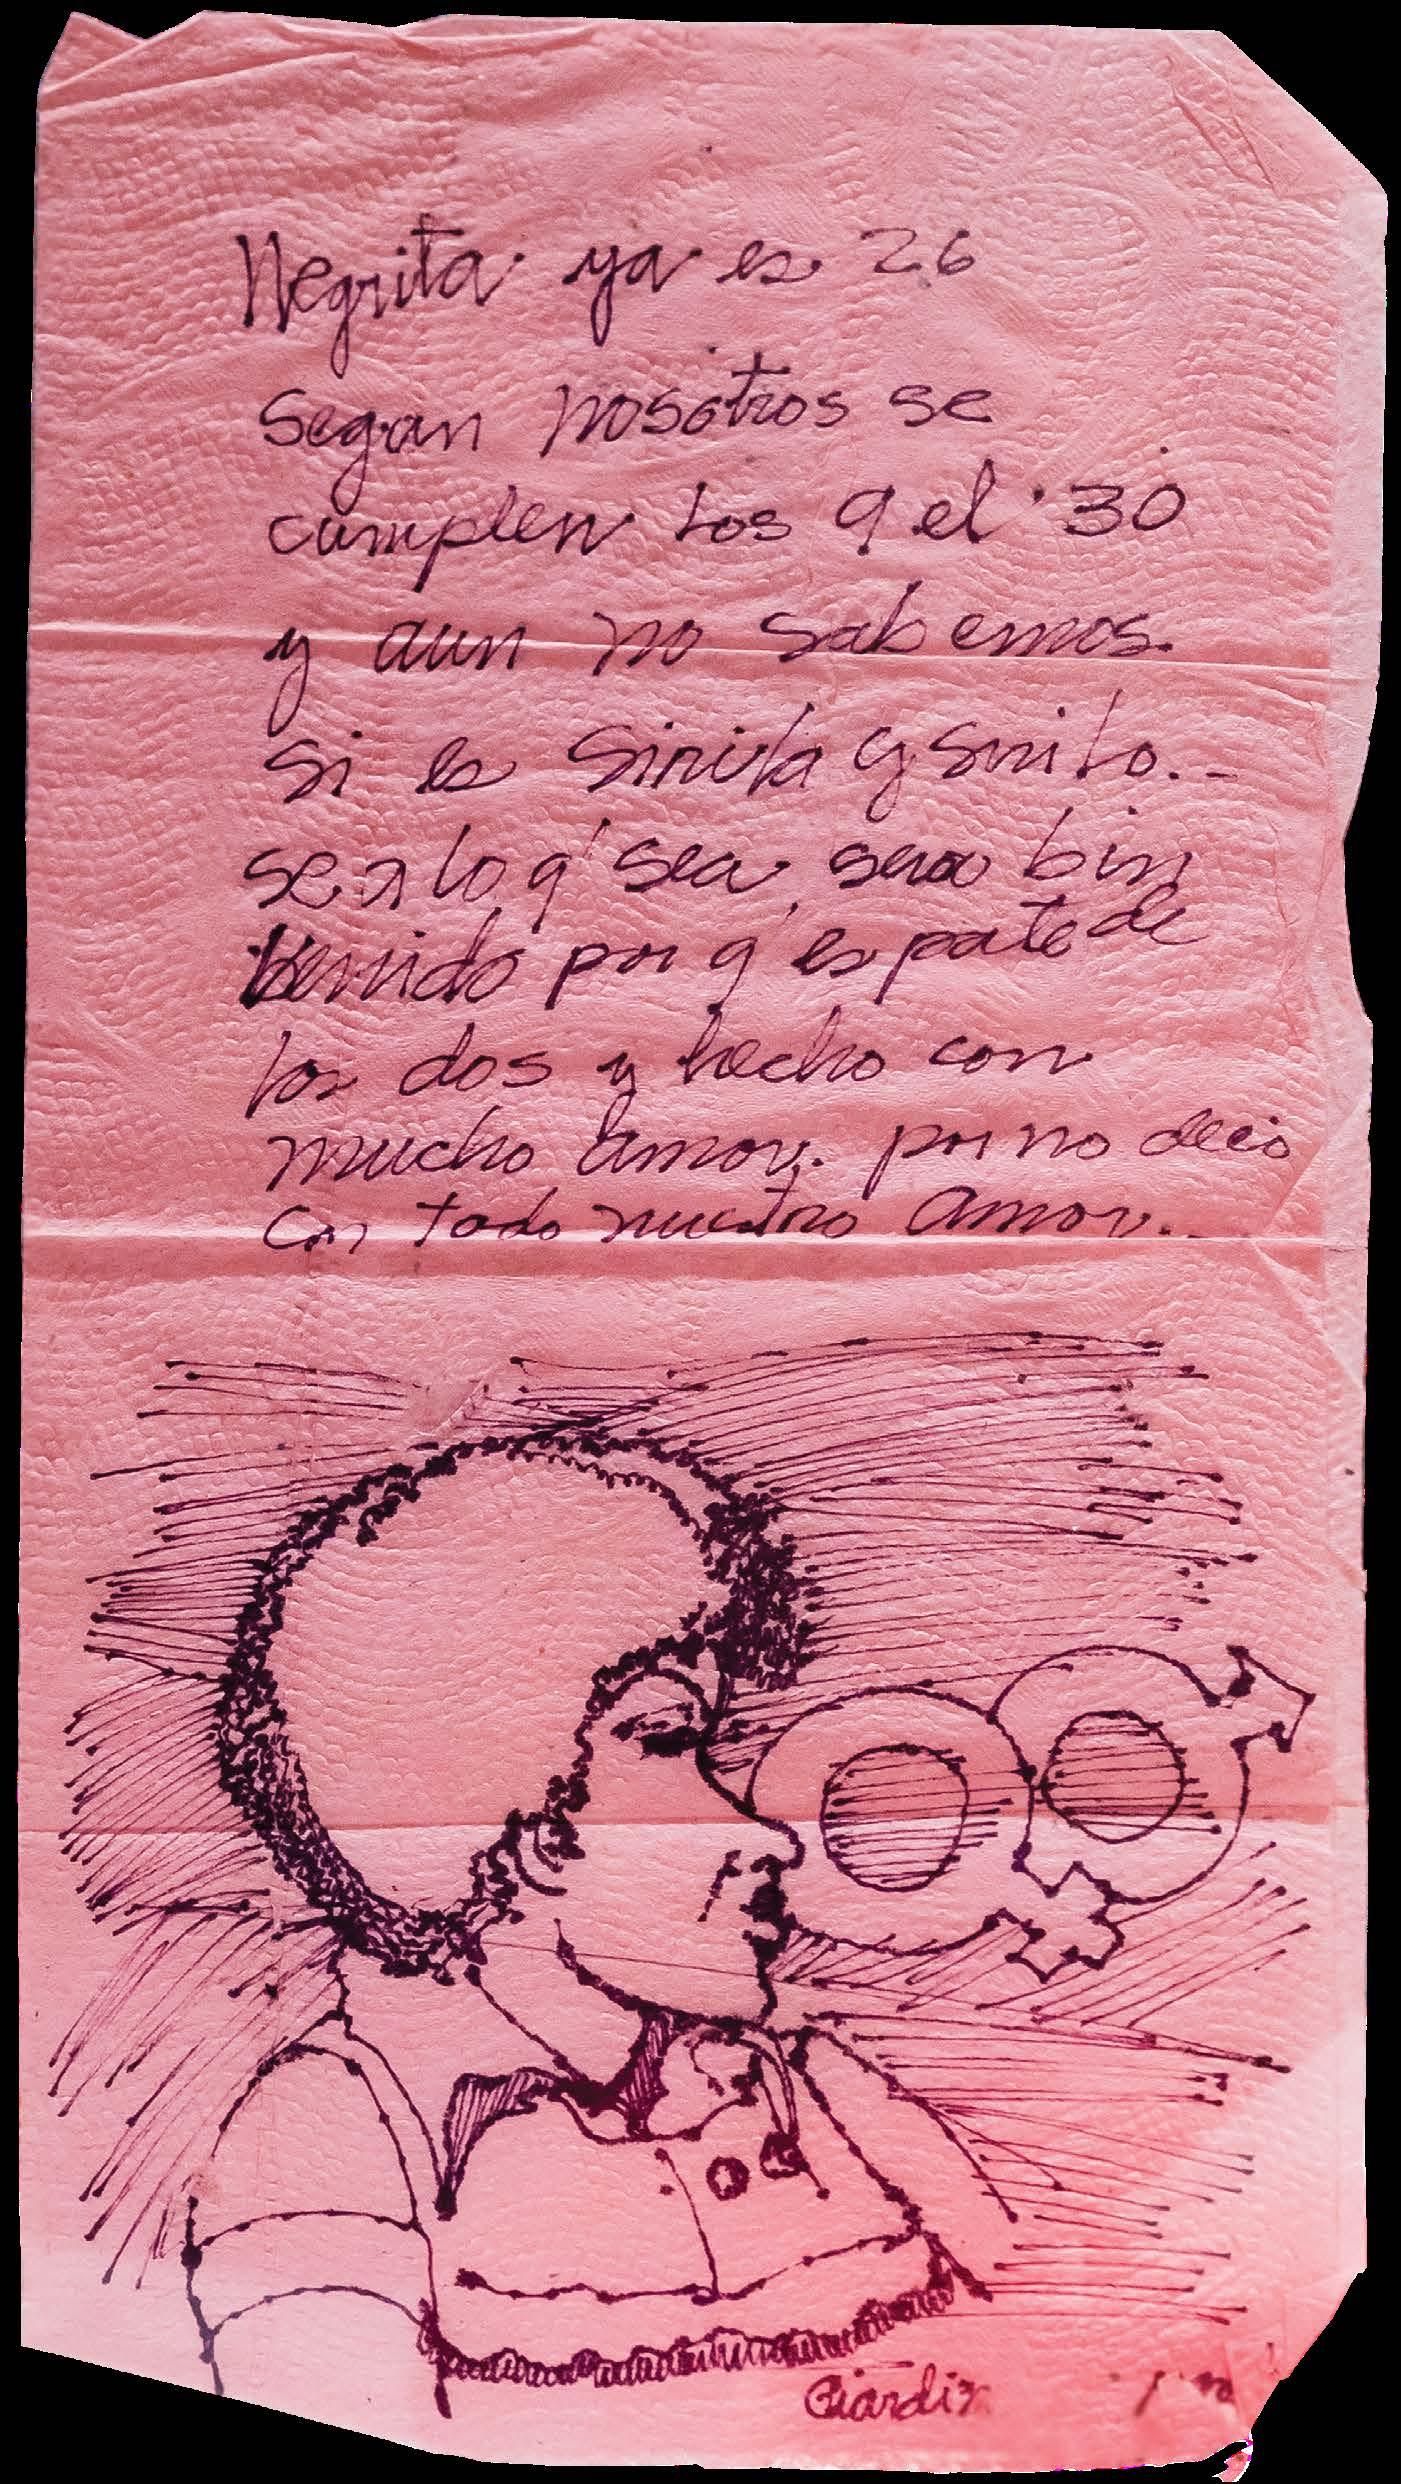 Negrita ya es 26
Segun nosotros se
cumplen los 9 el 30
y aun no sabemos
si es Sirida y sirito.-
sea lo q' sea sera bin
benido por q' es pate de
los dos y hecho con
mucho amor. por no decir
con todo nuestro amor.